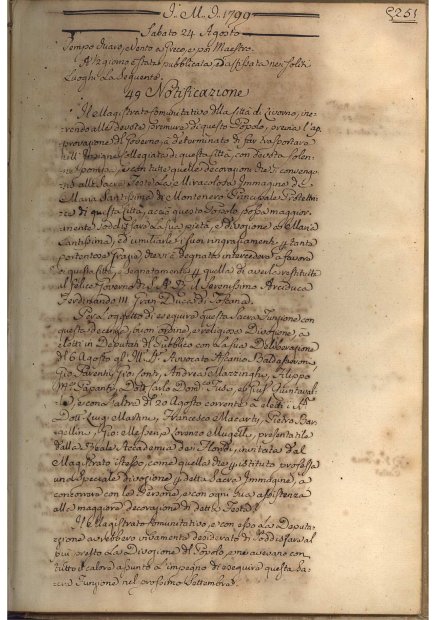 J. M. J. 1799
251
Sabato 24 Agosto
Tempo vario, e vento a Greco, e poi Maestro.
A 12 giorno è stata pubblicata, ed affissata nei soliti
Luoghi la seguente
49 Notificazione
Il Magistrato Comunitativo della Città di Livorno, ine-
rendo alle devote premure di questo Popolo, previa l'ap-
provazione del Governo, ha determinato di far trasportare
nell'Insigne Collegiata di questa Città, con devota solen-
ne pompa, e con tutte quelle decorazioni che si convengo-
no alle Sacre Feste la Miracolosa Immagine di
Maria Santissima di Montenero Principale Protettri-
ce di questa Città, acciò questo Popolo possa maggior-
mente soddisfare la sua pietà, e divozione a Maria
Santissima, ed umiliarle i suoi ringraziamenti per tante
portentose grazie che si è degnata intercedere a favore
di questa Città, e segnatamente per quella di averle restituito
il felice Governo di S. A. R. il Serenissimo Arciduca
Ferdinando III Gran Duca di Toscana.
Per l'oggetto di eseguire questa Sacra Funzione con
questa decenza, buon ordine, e religiosa Divozione, ha
eletti in Deputati del Pubblico con la sua Deliberazione
del 6 Agosto gl'Ill. Avvocato Ascanio Baldasseroni,
Gio. Parenti, Andrea Marzinghi, Filippo
e con l'altra del 20 Agosto corrente ha eletti i
Dott. Luigi Martini, Francesco Macarti, Pietro Bar-
gellini, Lorenzo Mugelli, presentatile
dalla Reale Accademia dei Floridi, invitata dal
Magistrato stesso, come quella che per istituto professa
una speciale divozione per detta Sacra Immagine, a
concorrere con le Persone, e con ogni sua assistenza
alla maggiore decorazione di dette Feste.
Il Magistrato Comunitativo, e con esso la Deputa-
zione avrebbero vivamente desiderato di soddisfare al
più presto la Divozione del Popolo, ed avevano con
tutto il calore assunto l'impegno di eseguire questa Sa-
cra Funzione nel prossimo Settembre.